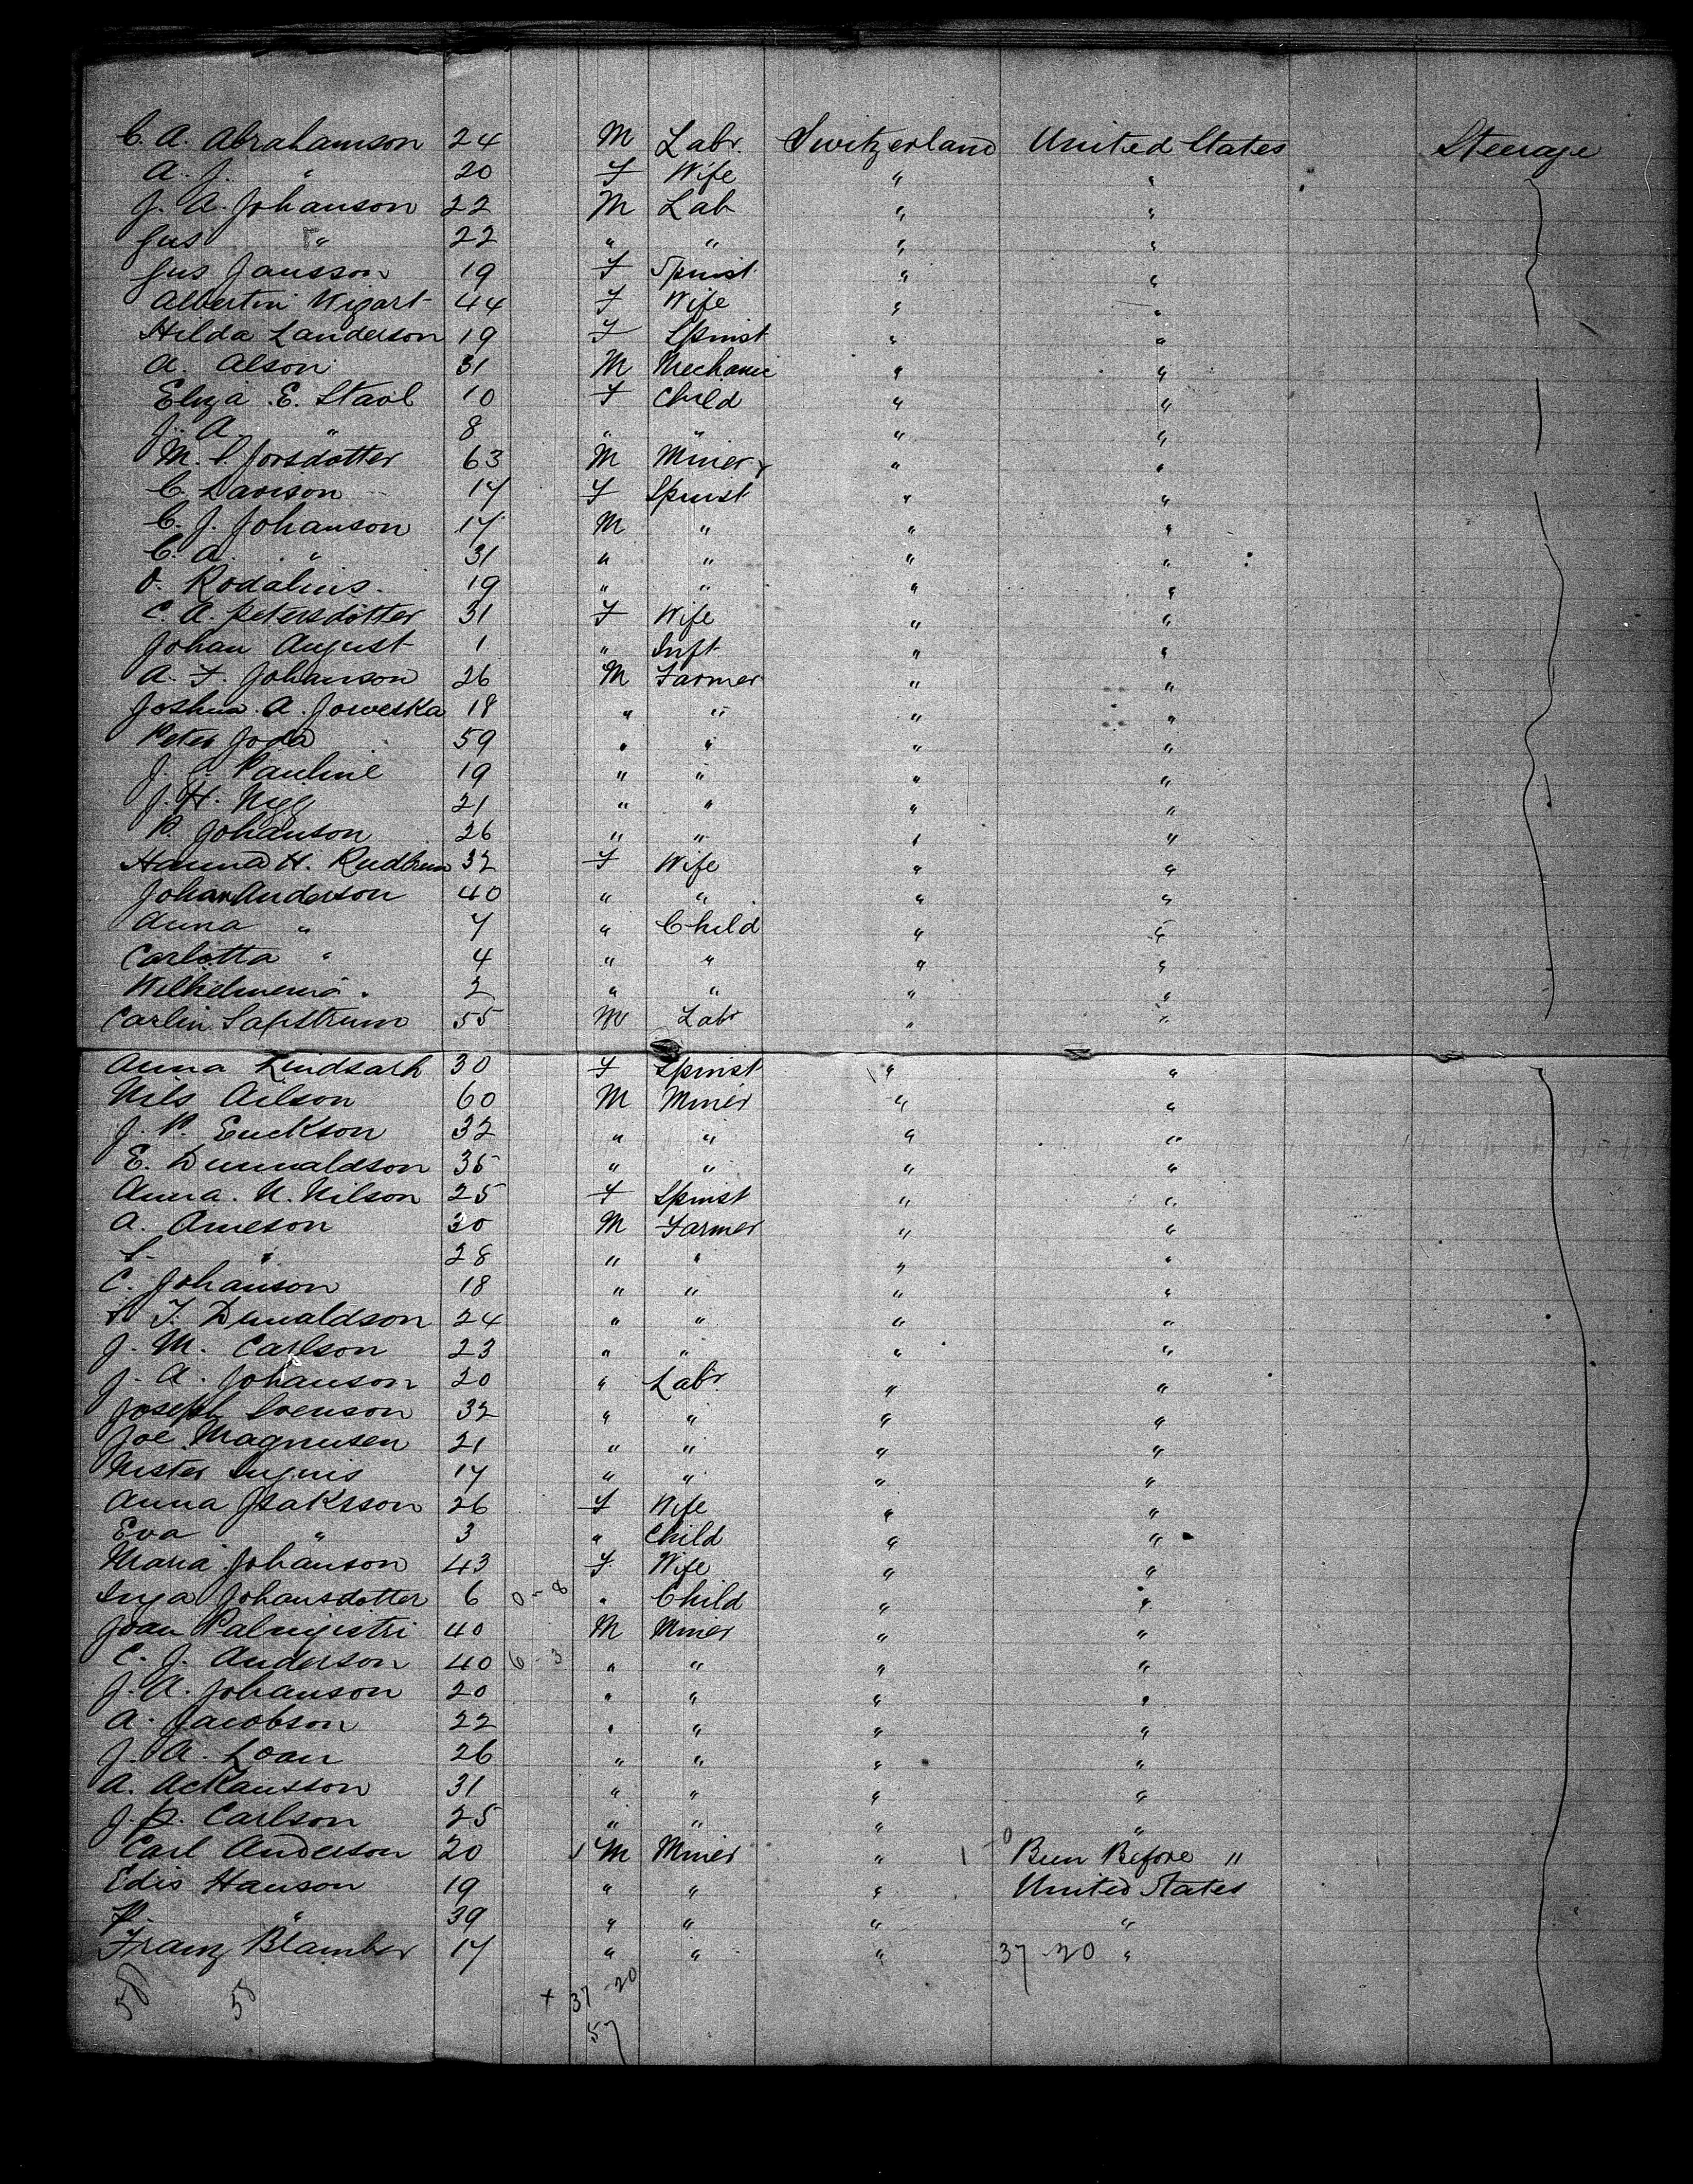 C. A. Abrahamson 24 M Labr. Switzerland United States Steerage
A. J. " 20 F Wife " "
J. A. Johanson 22 M Lab " "
Gus " 22 " " " "
Gus Jansson 19 F Spinst " "
Albertin Wigart 44 F Wife " "
Hilda Landerson 19 F Spinst " "
A. Alson 31 M Mechanic " "
Eliza E. Stavl 10 F Child " "
J. A. " 8 " " " "
M. S. Jorsdotter 63 M Miner " "
C. Davison 17 F Spinst " "
C. J. Johanson 17 M " " "
C. A. " 31 " " " "
O. Rodalius. 19 " " " "
C. A. Petersdotter 31 F Wife " "
Johan August 1 " Inft " "
A. F. Johanson 26 M Farmer " "
Joshua A. Joweska 18 " " " "
Peter Joda 59 " " " "
J. Pauline 19 " " " "
J. H. Nigg 21 " " " "
P. Johanson 26 " " " "
Hanna H. 32 F Wife " "
Johan Anderson 40 " " " "
Anna " 7 " Child " "
Carlotta " 4 " " " "
Wilhelmenia " 2 " " " "
Carlin Safstrum 55 M Labr " "
Anna Lindsath 30 F Spinst " "
Nils Ailson 60 M Miner " "
J. P. Erickson 32 " " " "
E. Dunnaldson 35 " " " "
Anna N. Nilson 25 F Spinst " "
A. Arneson 30 M Farmer " "
S. " 28 " " " "
C. Johanson 18 " " " "
T. Dunaldson 24 " " " "
J. M. Carlson 23 " " " "
J. A. Johanson 20 " Labr " "
Joseph Svenson 32 " " " "
Joe Magnusen 21 " " " "
17 " " " "
Anna Isaksson 26 F Wife " "
Eva " 3 " Child " "
Maria Johanson 43 F Wife " "
Inga Johansdotter 6 0-8 " Child " "
Joan Palmgistri 40 M Miner " "
C. J. Anderson 40 6-3 " " " "
J. A. Johanson 20 " " " "
A. Jacobson 22 " " " "
J. A. Loan 26 " " " "
A. Ackansson 31 " " " "
J. P. Carlson 25 " " " "
Carl Anderson 20 M Miner " Been Before "
Edis Hanson 19 " " " United States
P. " 39 " " " "
Franz Blamber 17 " " " 37 20 "
58 58 + 37 20
57